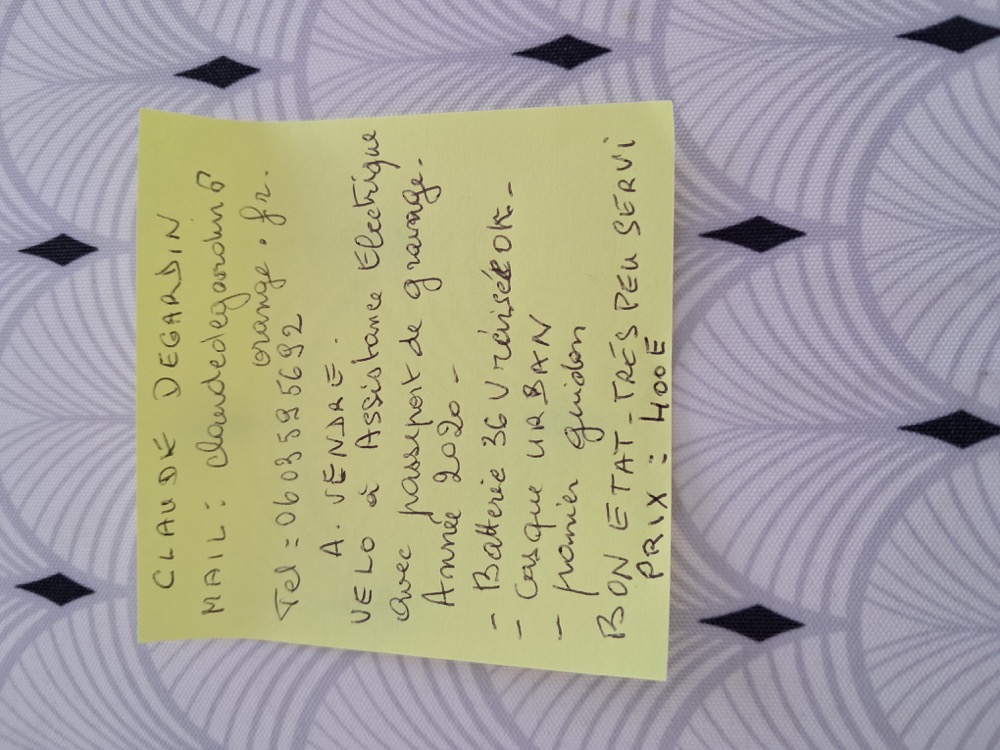 CLAUDE DEGARDIN
MAIL: claudedegardin@
orange.fr.
Tel = 0603595692
A. VENDRE.
VELO à Assistance Electrique
avec passeport de gravage.
Année 2020 -
- Batterie 36V révisée OK -
- Casque URBAN
- panier guidon
BON ETAT - TRÉS PEU SERVI
PRIX : 400E